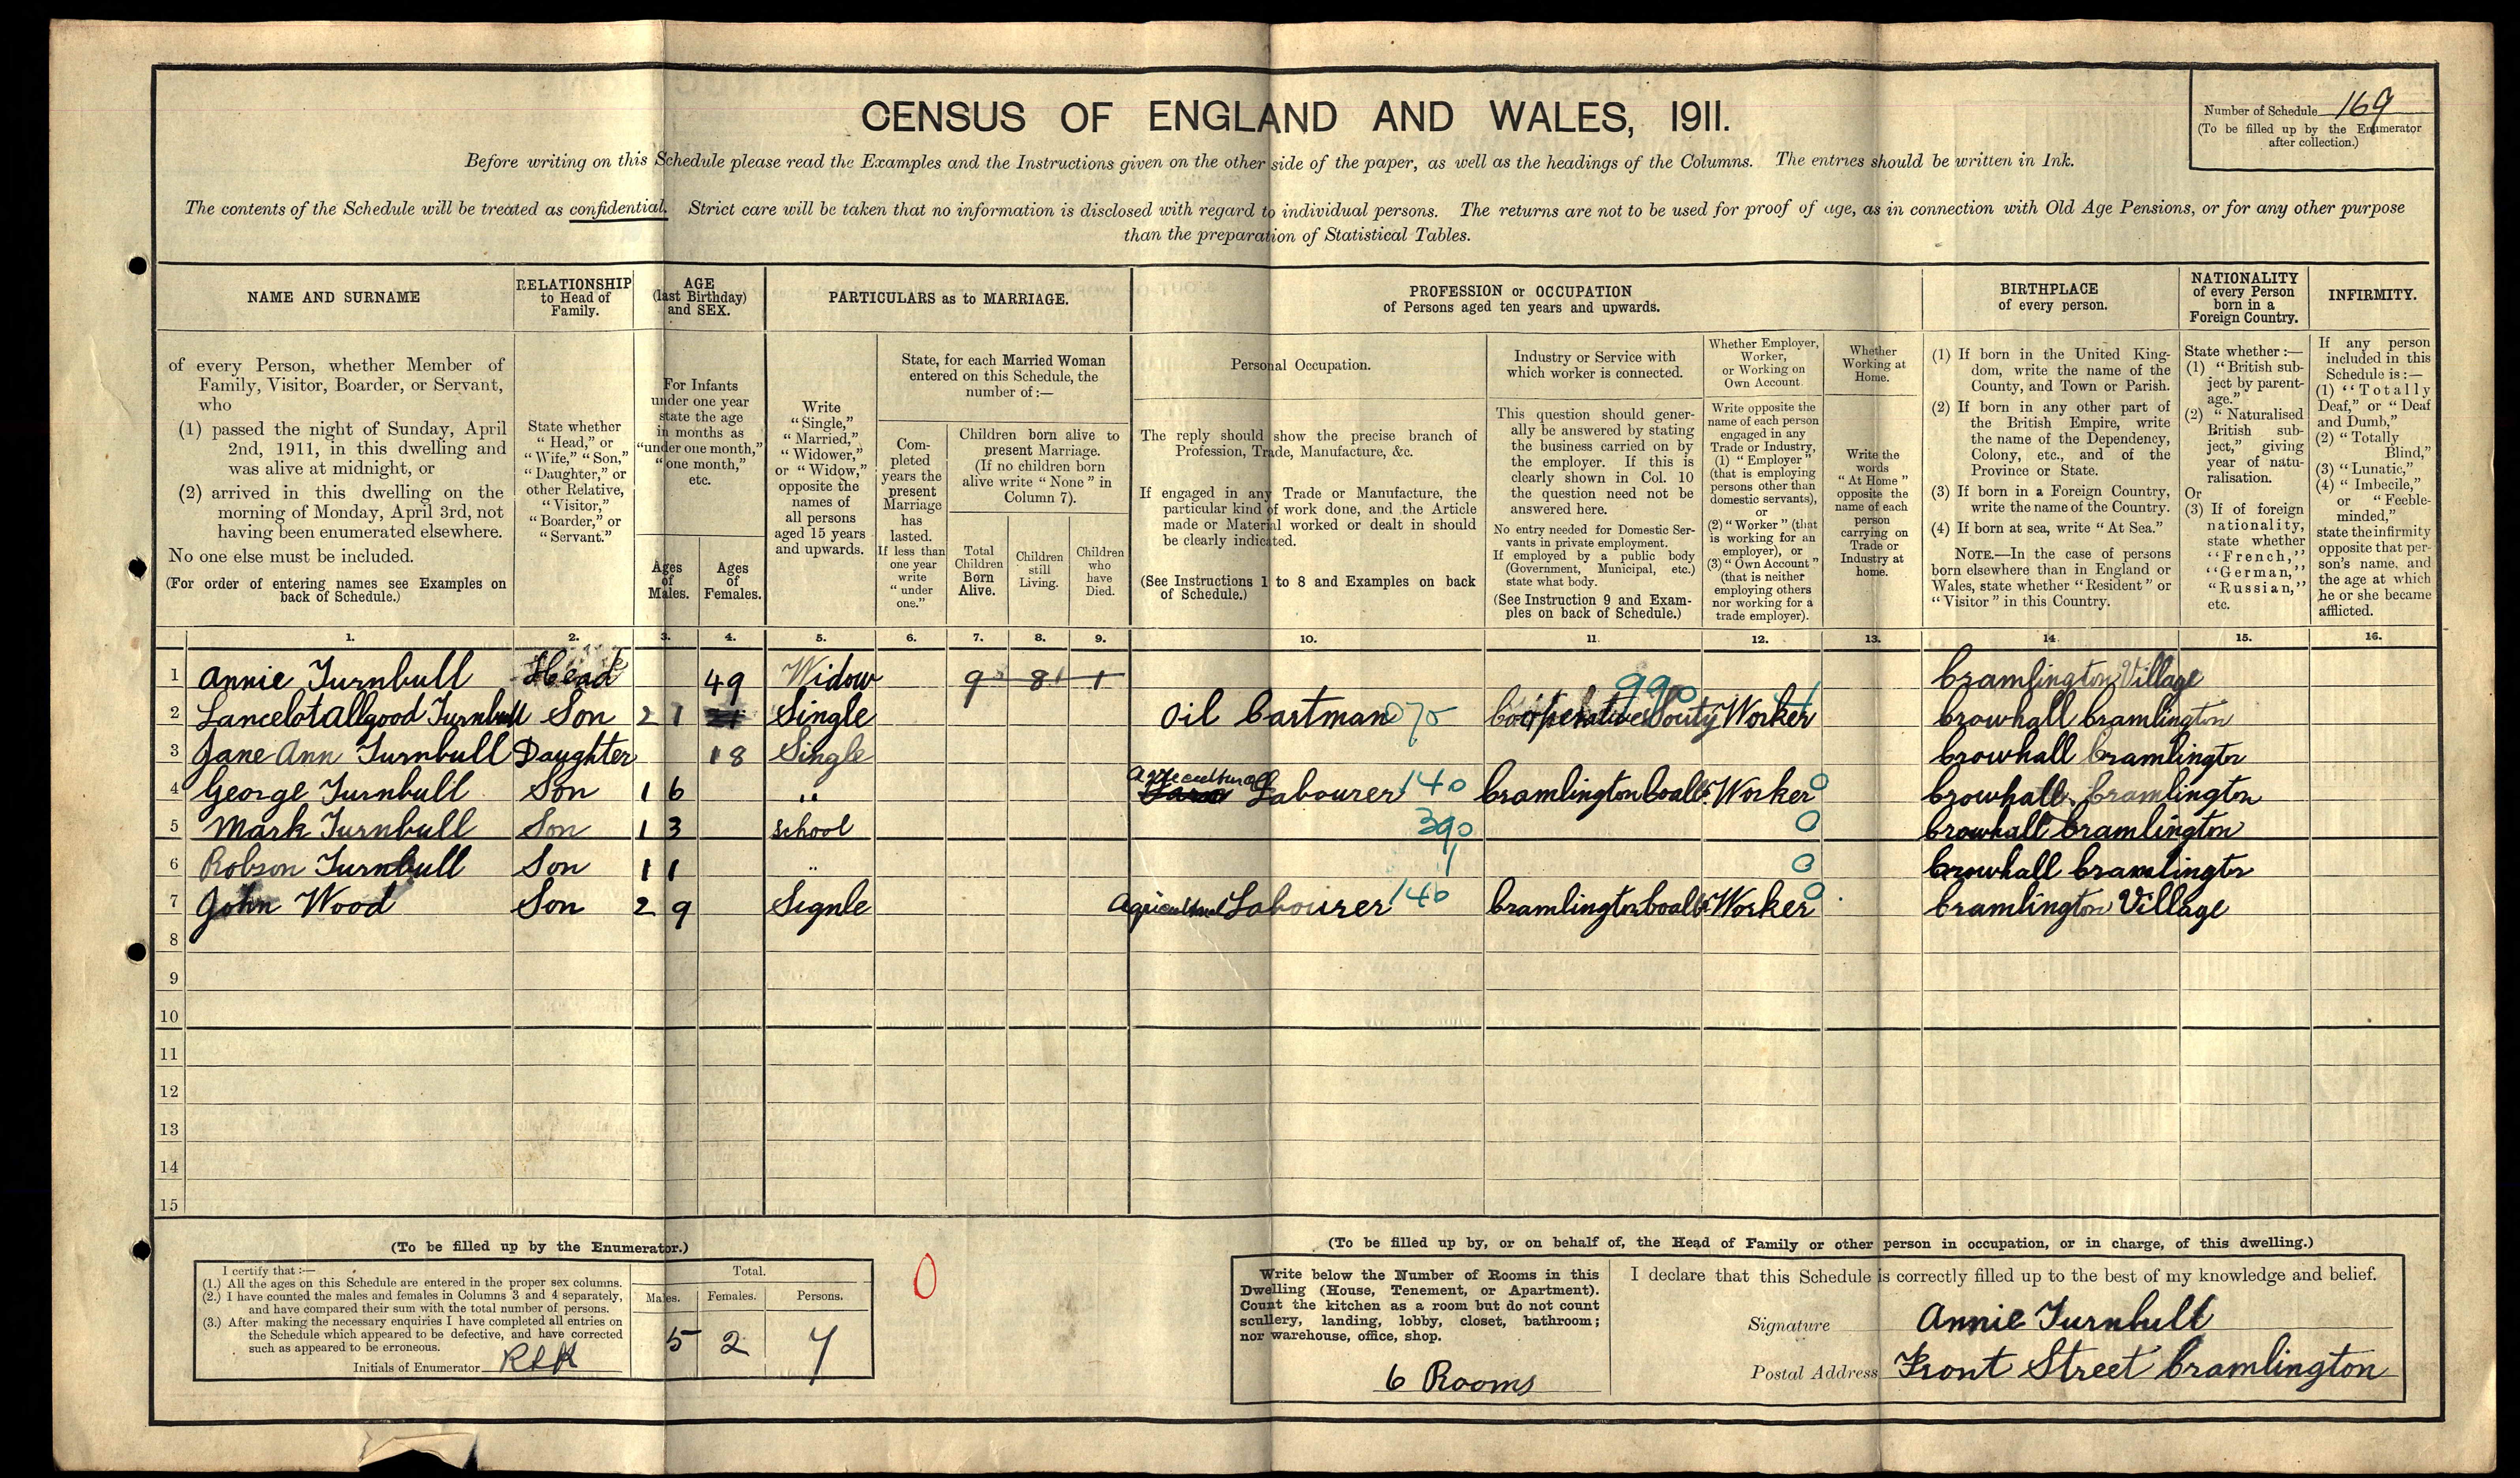 CENSUS OF ENGLAND AND WALES, 1911.
Number of Schedule 169
(To be filled up by the Enumerator
after collection.)
Before writing on this Schedule please read the Examples and the Instructions given on the other side of the paper, as well as the headings of the Columns. The entries should be written in Ink.
The contents of the Schedule will be treated as confidential. Strict care will be taken that no information is disclosed with regard to individual persons. The returns are not to be used for proof of age, as in connection with Old Age Pensions, or for any other purpose
than the preparation of Statistical Tables.
NAME AND SURNAME
of every Person, whether Member of
Family, Visitor, Boarder, or Servant,
who
(1) passed the night of Sunday, April
2nd, 1911, in this dwelling and
was alive at midnight, or
(2) arrived in this dwelling on the
morning of Monday, April 3rd, not
having been enumerated elsewhere.
No one else must be included.
(For order of entering names see Examples on
back of Schedule.)
RELATIONSHIP
to Head of
Family.
State whether
"Head," or
"Wife," "Son,"
"Daughter," or
other Relative,
"Visitor,"
"Boarder," or
"Servant."
AGE
(last Birthday)
and SEX.
For Infants
under one year
state the age
in months as
"under one month,"
"one month,"
etc.
Ages
of
Males.
Ages
of
Females.
PARTICULARS as to MARRIAGE.
Write
"Single,"
"Married,"
"Widower,"
or "Widow,"
opposite the
names of
all persons
aged 15 years
and upwards.
State, for each Married Woman
entered on this Schedule, the
number of:—
Com-
pleted
years the
present
Marriage
has
lasted.
If less than
one year
write
"under
one."
Children born alive to
present Marriage.
(If no children born
alive write "None" in
Column 7).
Total
Children
Born
Alive.
Children
still
Living.
Children
who
have
Died.
PROFESSION or OCCUPATION
of Persons aged ten years and upwards.
Personal Occupation.
The reply should show the precise branch of
Profession, Trade, Manufacture, &c.
If engaged in any Trade or Manufacture, the
particular kind of work done, and the Article
made or Material worked or dealt in should
be clearly indicated.
(See Instructions 1 to 8 and Examples on back
of Schedule.)
Industry or Service with
which worker is connected.
This question should gener-
ally be answered by stating
the business carried on by
the employer. If this is
clearly shown in Col. 10
the question need not be
answered here.
No entry needed for Domestic Ser-
vants in private employment.
If employed by a public body
(Government, Municipal, etc.)
state what body.
(See Instruction 9 and Exam-
ples on back of Schedule.)
Whether Employer,
Worker,
or Working on
Own Account.
Write opposite the
name of each person
engaged in any
Trade or Industry,
(1) "Employer"
(that is employing
persons other than
domestic servants),
or
(2) "Worker" (that
is working for an
employer), or
(3) "Own Account"
(that is neither
employing others
nor working for a
trade employer).
Whether
Working at
Home.
Write the
words
"At Home"
opposite the
name of each
person
carrying on
Trade or
Industry at
home.
BIRTHPLACE
of every person.
(1) If born in the United King-
dom, write the name of the
County, and Town or Parish.
(2) If born in any other part of
the British Empire, write
the name of the Dependency,
Colony, etc., and of the
Province or State.
(3) If born in a Foreign Country,
write the name of the Country.
(4) If born at sea, write "At Sea."
NOTE.—In the case of persons
born elsewhere than in England or
Wales, state whether "Resident" or
"Visitor" in this Country.
NATIONALITY
of every Person
born in a
Foreign Country.
State whether:—
(1) "British sub-
ject by parent-
age."
(2) "Naturalised
British sub-
ject," giving
year of natu-
ralisation.
Or
(3) If of foreign
nationality,
state whether
"French,"
"German,"
"Russian,"
etc.
INFIRMITY.
If any person
included in this
Schedule is:—
(1) "Totally
Deaf," or "Deaf
and Dumb,"
(2) "Totally
Blind,"
(3) "Lunatic,"
(4) "Imbecile,"
or "Feeble-
minded,"
state the infirmity
opposite that per-
son's name, and
the age at which
he or she became
afflicted.
1. 2. 3. 4. 5. 6. 7. 8. 9. 10. 11. 12. 13. 14. 15. 16.
1 Annie Turnbull Head 49 Widow 9 8 1 Cramlington Village
990
2 Lancelot Allgood Turnbull Son 21 Single Oil Cartman 070 Cooperative Souity Worker Crowhall Cramlington
3 Jane Ann Turnbull Daughter 18 Single Crowhall Cramlingtn
4 George Turnbull Son 16 " Agricultural Labourer 140 Cramlington Coall Worker 0 Crowhall Cramlington
5 Mark Turnbull Son 13 School 390 0 Crowhall Cramlington
6 Robson Turnbull Son 11 " 1 0 Crowhall Cramlingtn
7 John Wood Son 29 Signle Agricultural Labourer 140 Cramlington Coall Worker 0 Cramlington Village
8
9
10
11
12
13
14
15
(To be filled up by the Enumerator.)
I certify that:—
(1.) All the ages on this Schedule are entered in the proper sex columns.
(2.) I have counted the males and females in Columns 3 and 4 separately,
and have compared their sum with the total number of persons.
(3.) After making the necessary enquiries I have completed all entries on
the Schedule which appeared to be defective, and have corrected
such as appeared to be erroneous.
Initials of Enumerator
Total.
Males. Females. Persons.
5 2 7
0
(To be filled up by, or on behalf of, the Head of Family or other person in occupation, or in charge, of this dwelling.)
Write below the Number of Rooms in this
Dwelling (House, Tenement, or Apartment).
Count the kitchen as a room but do not count
scullery, landing, lobby, closet, bathroom;
nor warehouse, office, shop.
6 Rooms
I declare that this Schedule is correctly filled up to the best of my knowledge and belief.
Signature Annie Turnbull
Postal Address Front Street Cramlington